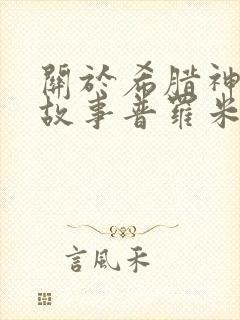 關於希腊神
故事普羅米
言風禾